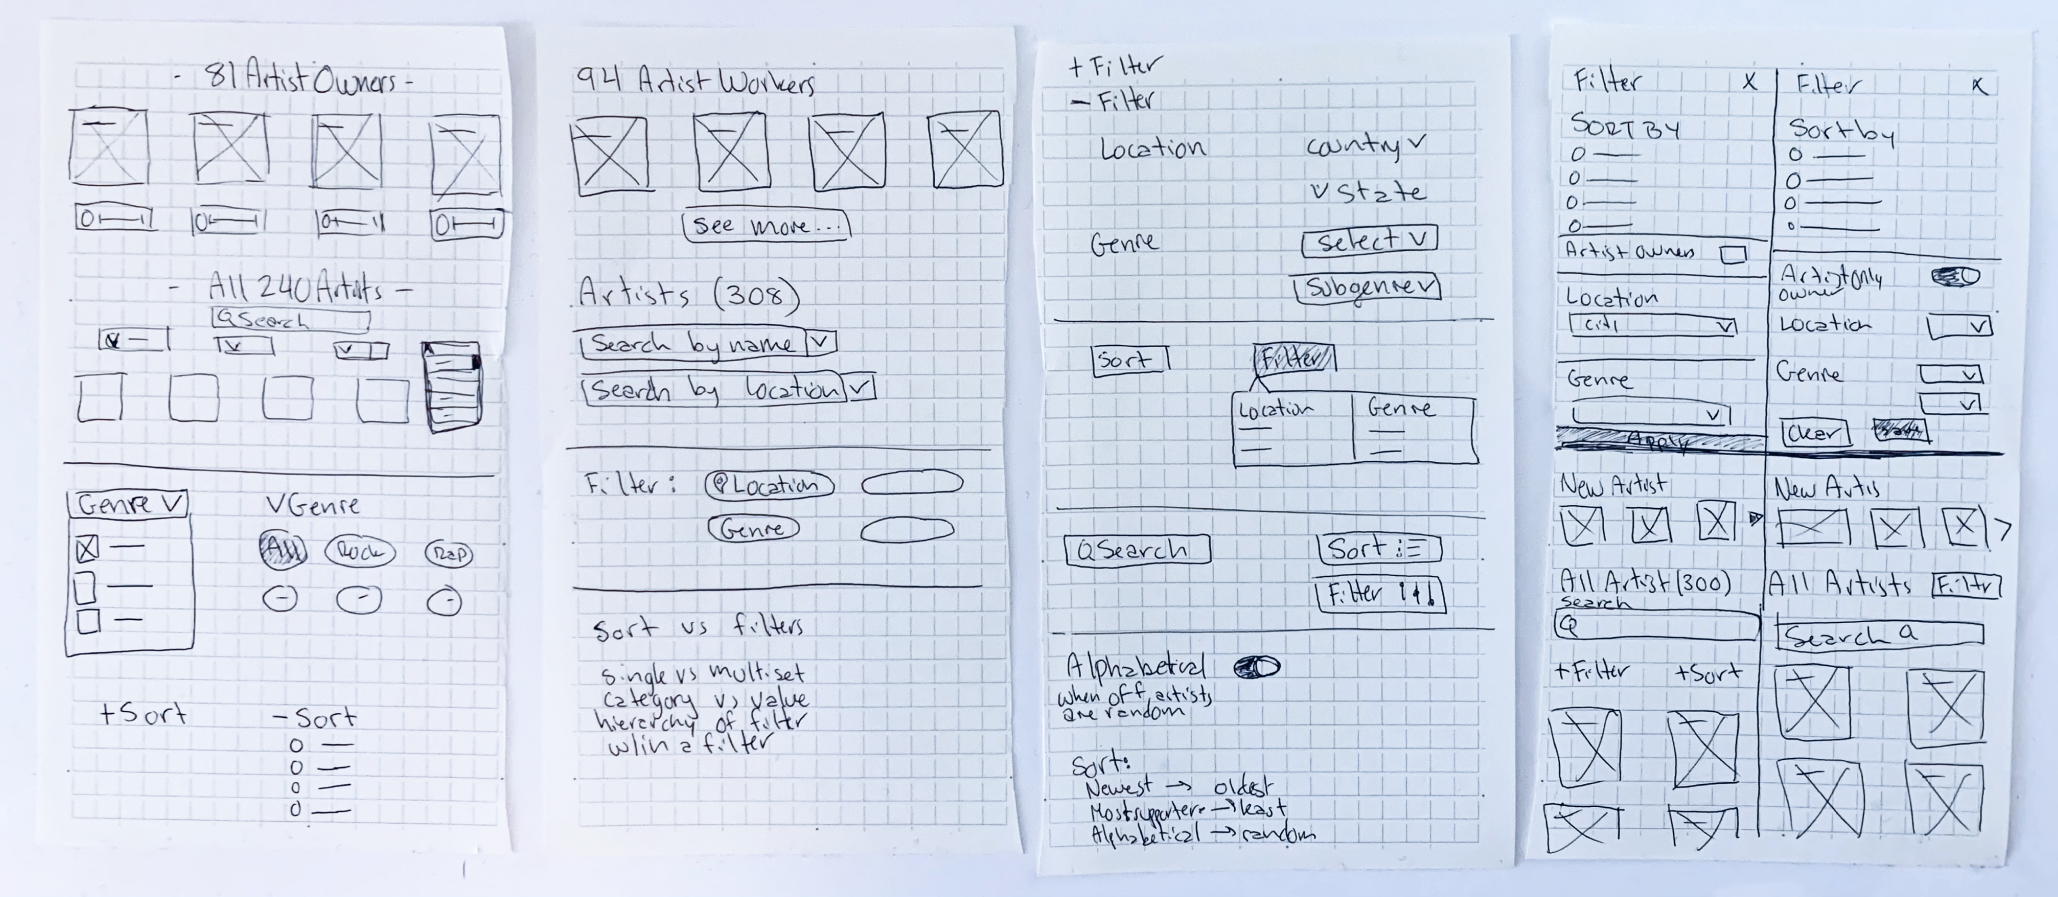 - 81 Artist Owners -
- All 240 Artists -
Search
Genre
Genre
All Rock Rap
+ Sort - Sort
94 Artist Workers
See more...
Artists (308)
Search by name
Search by location
Filter: Location
Genre
Sort vs filters
single vs multiset
category vs value
hierarchy of filter
w/in a filter
+ Filter
- Filter
Location country
State
Genre select
Subgenre
Sort Filter
Location Genre
Search Sort
Filter
Alphabetical
when off, artists
are random
Sort:
Newest → oldest
Most supporters → least
Alphabetical → random
Filter X
SORT BY
Artist Owners
Location
Citi
Genre
Apply
New Artist
All Artist (300)
Search
+ Filter + Sort
Filter X
Sort by
Artist only
owner
Location
Genre
Clear
New Artis
All Artists Filtr
Search